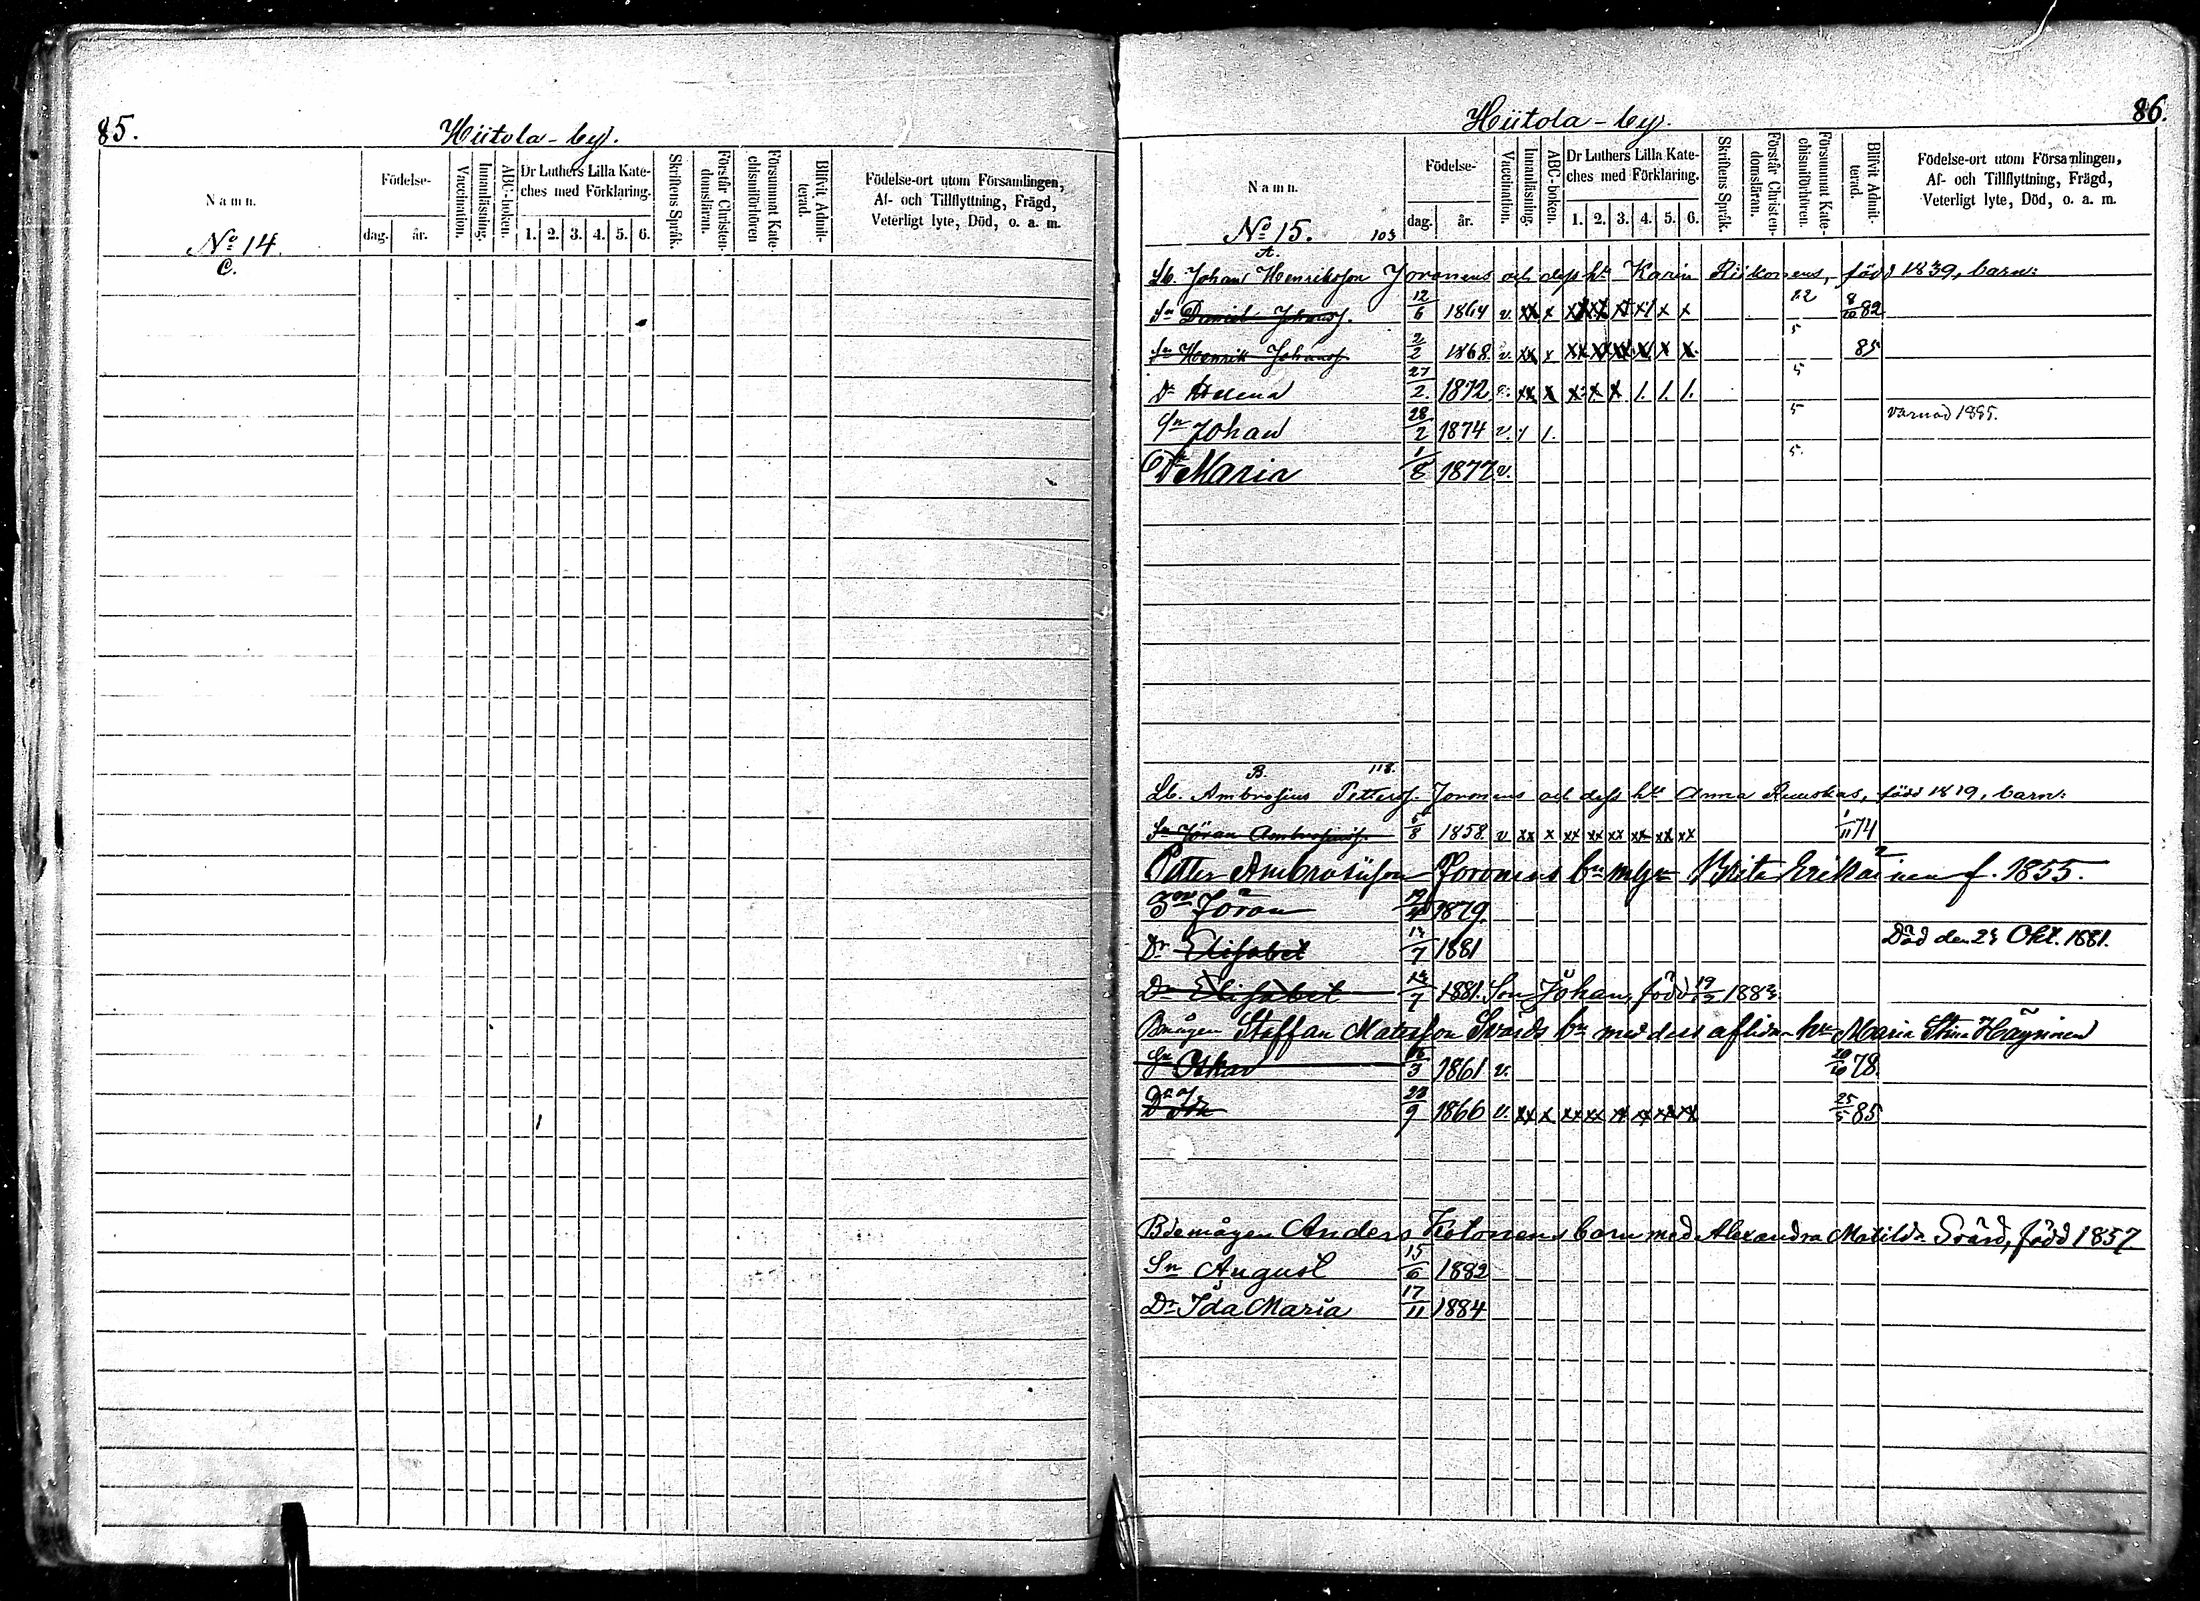 85.
Hiitola-by.
Namn.
Födelse-
dag.
år.
Vaccination.
Innanläsning.
ABC-boken.
Dr Luthers Lilla Kate-
ches med Förklaring.
1. 2. 3. 4. 5. 6.
Skriftens Språk.
Förstår Christen-
domsläran.
Försummat Kate-
chismiförhören
Blifvit Admit-
terad.
Födelse-ort utom Församlingen,
Af- och Tillflyttning, Frägd,
Veterligt lyte, Död, o. a. m.
No 14.
C.
86.
Hiitola-by.
Namn.
Födelse-
dag.
år.
Vaccination.
Innanläsning.
ABC-boken.
Dr Luthers Lilla Kate-
ches med Förklaring.
1. 2. 3. 4. 5. 6.
Skriftens Språk.
Förstår Christen-
domsläran.
Försummat Kate-
chismiförhören.
Blifvit Admit-
terad.
Födelse-ort utom Församlingen,
Af- och Tillflyttning, Frägd,
Veterligt lyte, Död, o. a. m.
No 15. 103
A.
Lb. Johan Henriksson Joronens och dess hu Karin Riikonens, född 1839, barn:
Sn Daniel Johanss. 12/6 1864 v. xx x xx xx xx x x x 8/10 82
Sn Henrik Johanss. 2/2 1868 v. xx x xx xx xx x x x 5 85
Dr Helena 27/2 1872 v. xx x x x x 1. 1. 1. 5
Sn Johan 28/2 1874 v. 1 1. 5 varnad 1885.
Dr Maria 1/8 1877 v. 5.
B. 118.
Lb. Ambrosius Petterss. Joronens och dess hu Anna Ruuskas, född 1819, barn:
Sn Jöran Ambrosiuss. 5/8 1858 v xx x xx xx xx xx xx xx 1/11 74
Petter Ambrosiison Joronens bn m hn Brita Erikäinen f. 1855.
Son Jöran 1879.
Dr Elisabet 14/7 1881 Död den 24 Okt. 1881.
Dr Elisabet 14/7 1881. Son Johan, född
Bmågen Staffan Matsson Svärds bn med dess aflidna hu Maria Stina Häyrinen
Sn Oskar 1861 v. 20/10 78.
Dr Ida 23/9 1866 v. xx x xx xx xx xx xx xx 25/5 85
Bdemågen Anders Ketonens barn med Alexandra Matilda Svärd, född 1857.
Sn August 15/6 1882
Dr Ida Maria 17/11 1884